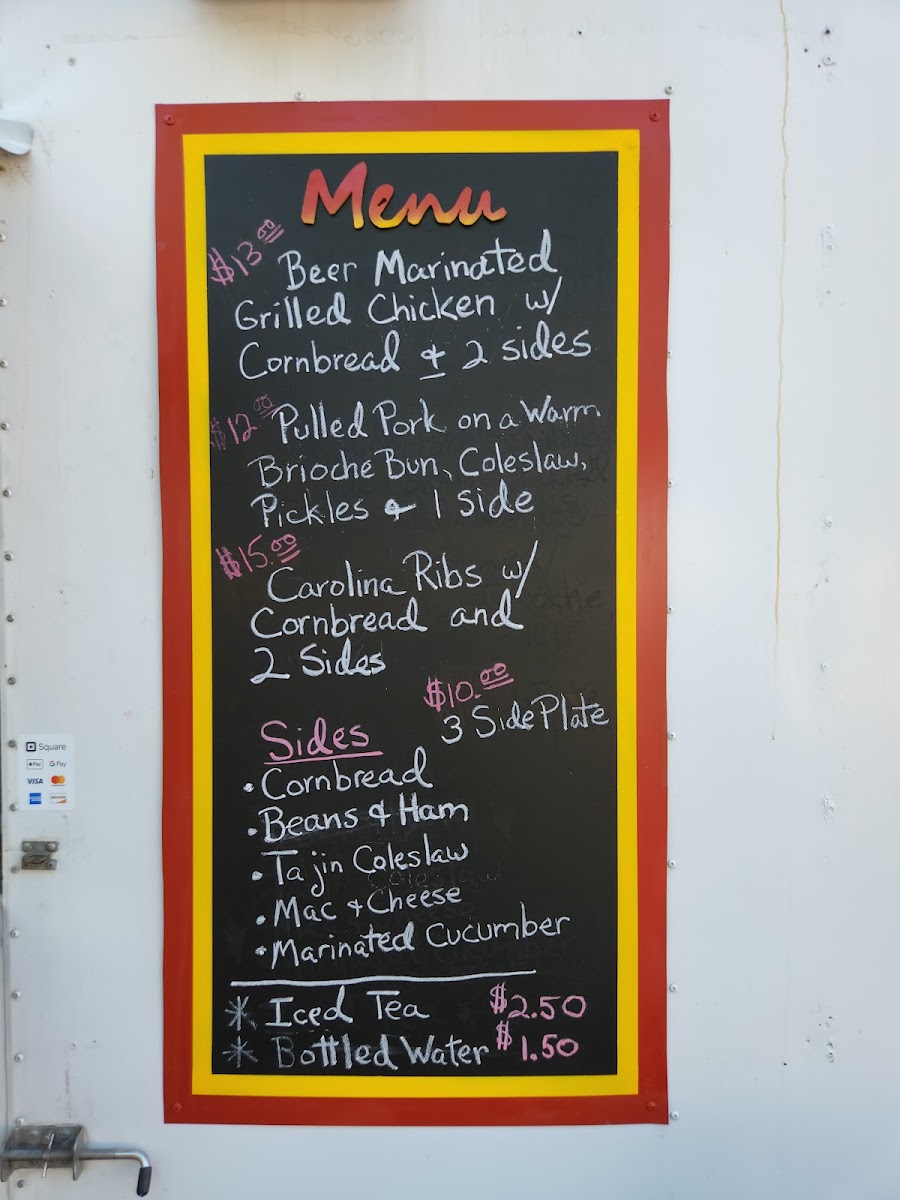 Menu
$13.00 Beer Marinated
Grilled Chicken w/
Cornbread & 2 sides
$12.00 Pulled Pork on a Warm
Brioche Bun, Coleslaw,
Pickles & 1 side
$15.00
Carolina Ribs w/
Cornbread and
2 Sides
$10.00
3 Side Plate
Sides
• Cornbread
• Beans & Ham
• Tajin Coleslaw
• Mac & Cheese
• Marinated Cucumber
* Iced Tea $2.50
* Bottled Water $1.50
Square
Pay G Pay
VISA mastercard